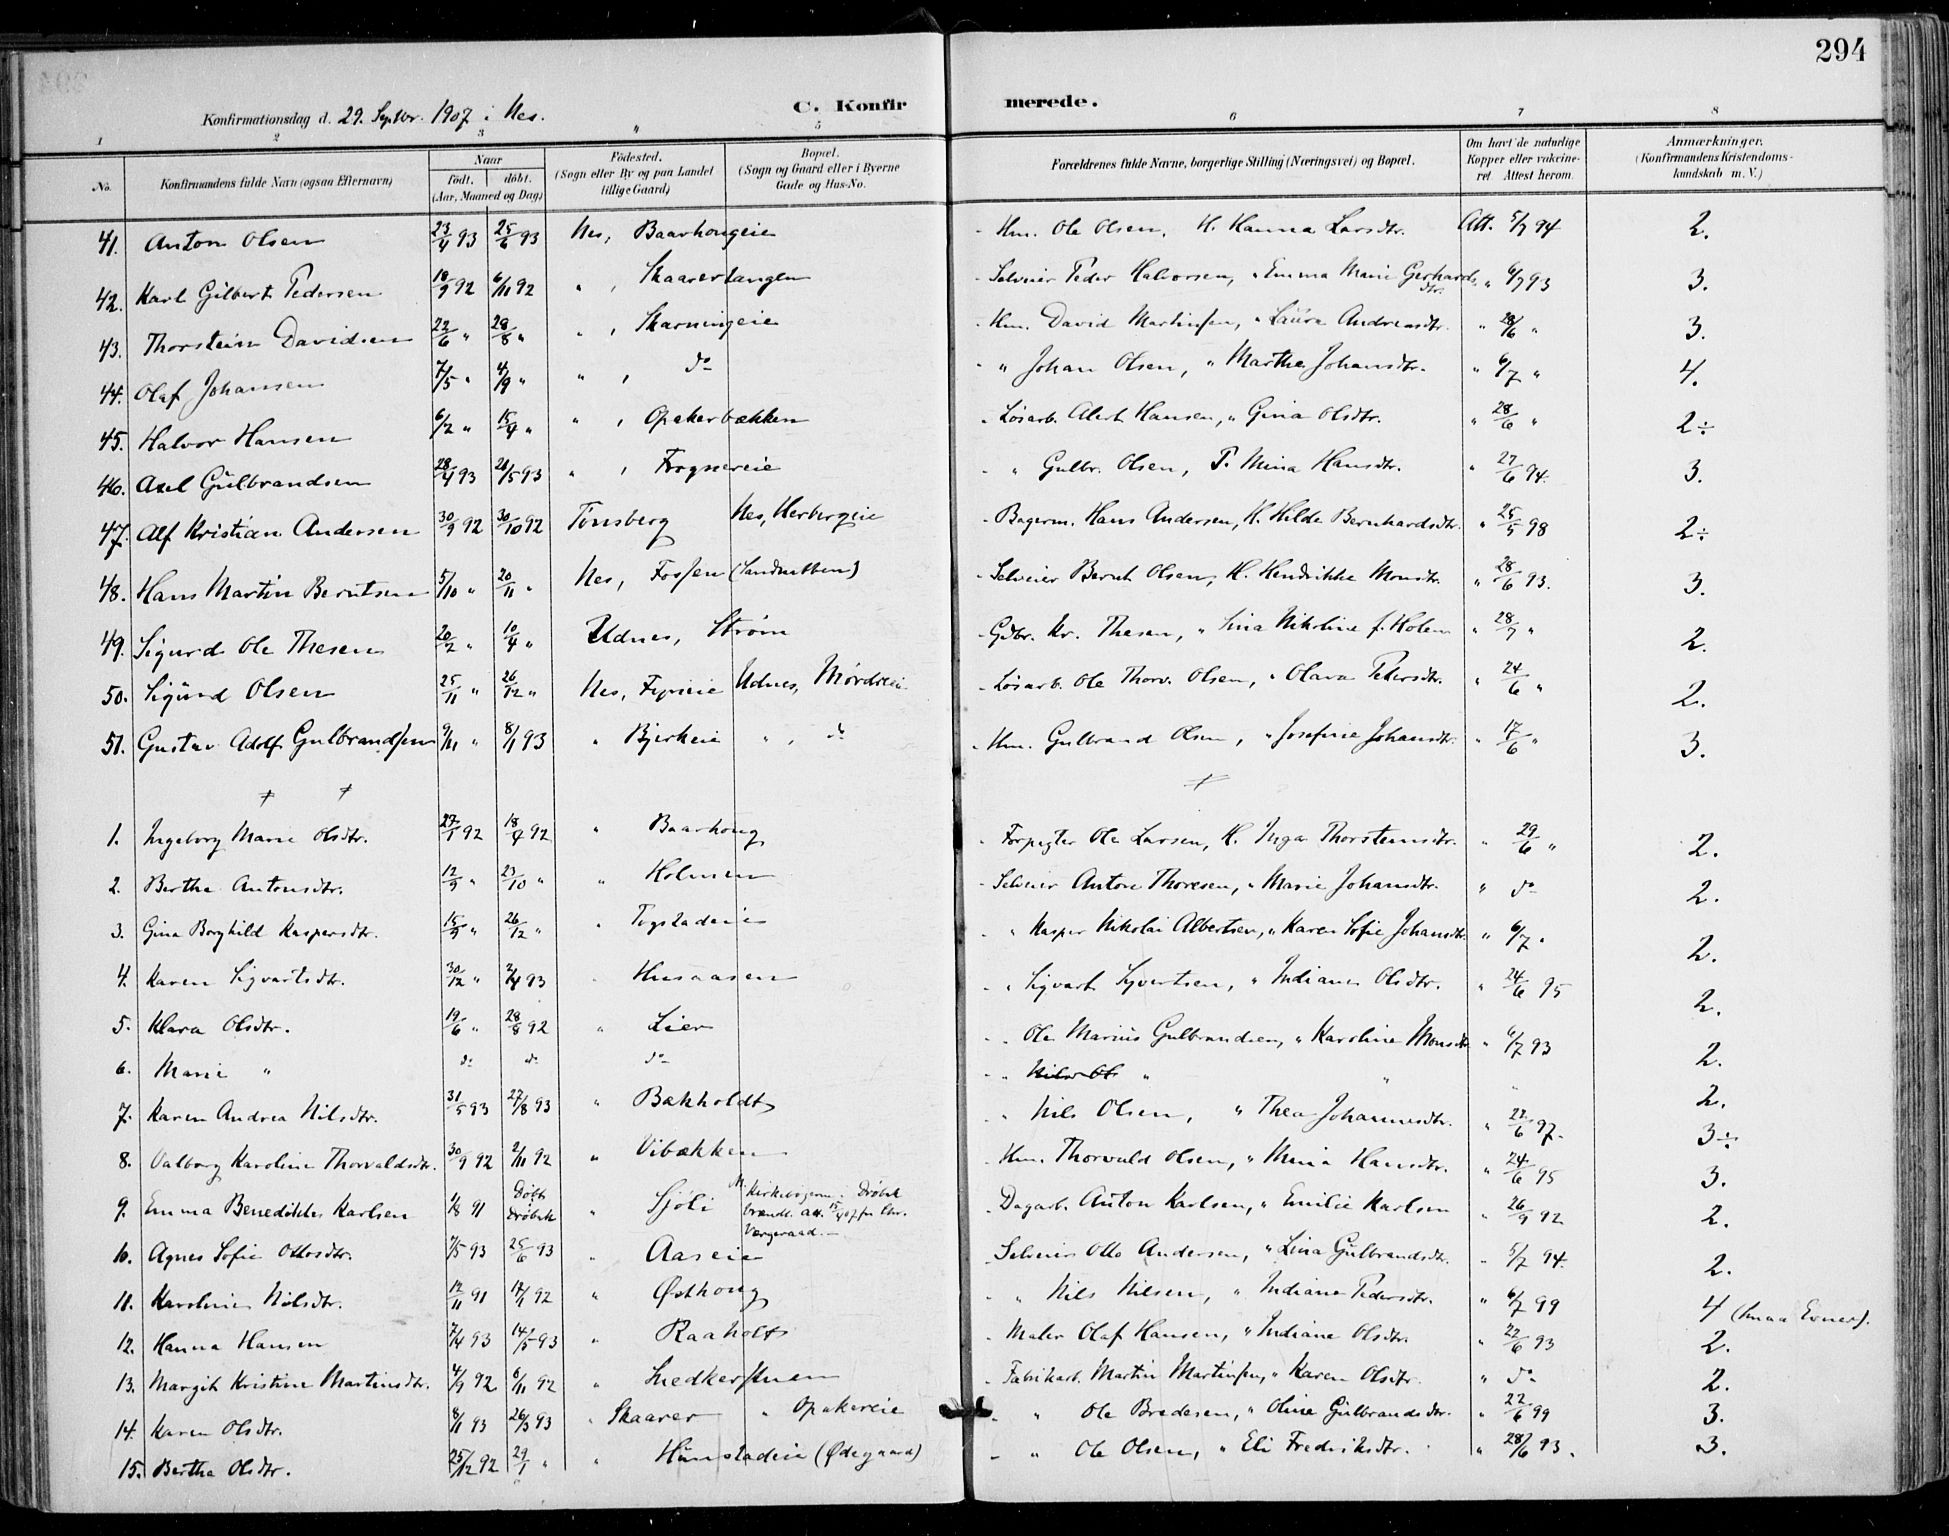 294
C. Konfirmerede.
Konfirmationsdag d. 29. Septbr. 1907 i Nes.
1 2 3 " 5 6 7 8
No. Konfirmandens fulde Navn (ogsaa Efternavn) Naar født. døbt. (Aar, Maaned og Dag) Fødested. (Sogn eller By og paa Landet tillige Gaard) Bopæl. (Sogn og Gaard eller i Byerne Gade og Hus-No. Forældrenes fulde Navne, borgerlige Stilling (Næringsvei) og Bopæl. Om havt de naturlige Kopper eller vakcineret. Attest herom. Anmærkninger. (Konfirmandens Kristendomskundskab m. V.)
41. Anton Olsen 23/4 93 25/6 93 Nes, Baarhougeie Hm. Ole Olsen, H. Hanna Larsdtr. Att. 5/7 94 2.
42. Karl Gilbert Pedersen 18/9 92 6/11 92 " , Skaarertangen Selveier Peder Halvorsen, " Emma Marie Gerhardsdtr. " 6/7 93 3.
43. Thorstein Davidsen 22/6 " 28/8 " " , Skarningeie Hm. David Martinsen, " Laura Andreasdtr. " 28/6 " 3.
44. Olaf Johansen 7/5 " 4/9 " " , do " Johan Olsen, " Marthe Johansdtr. " 6/7 " 4.
45. Halvor Hansen 6/2 " 15/4 " " , Opakerbækken Løsarb. Alert Hansen, " Gina Olsdtr. " 28/6 " 2÷
46. Axel Gulbrandsen 28/4 93 21/5 93 " , Frognereie " Gulbr. Olsen, P. Mina Hansdtr. " 27/6 94. 3.
47. Alf Kristian Andersen 30/9 92 30/10 92 Tønsberg Nes, Herbergeie Bagerm. Hans Andersen, H. Hilde Bernhardsdtr. " 25/5 98 2÷
48. Hans Martin Berntsen 5/10 " 20/11 " Nes, Fossen (Sandnabben) Selveier Bernt Olsen, H. Hendrikke Monsdtr. " 28/6 93. 3.
49. Sigurd Ole Thesen 20/2 " 10/4 " Udnes, Strøm Gdbr. Kr. Thesen, " Lina Nikoline f. Holm " 28/7 " 2.
50. Sigurd Olsen 25/11 " 26/12 " Nes, Fyrieie Udnes, Nordreie Løsarb. Ole Thorv. Olsen, " Olava Pedersdtr. " 24/6 " 2.
51. Gustav Adolf Gulbrandsen 9/11 " 8/1 93 " Bjerkeie " , do Hm. Gulbrand Olsen, " Josefine Johansdtr. " 17/6 " 3.
1. Ingeborg Marie Olsdtr. 27/1 92 18/4 92 " Baarhoug Forpagter Ole Larsen, H. Inga Thorsteinsdtr. " 29/6 " 2.
2. Berthe Antonsdtr. 12/9 " 23/10 " " Holmen Selveier Anton Thoresen, " Marie Johansdtr. " do 2.
3. Gina Borghild Kaspersdtr. 15/9 " 26/12 " " Togstadeie " Kasper Nikolai Albertsen, " Karen Sofie Johansdtr. " 6/7 " 2.
4. Karen Sigvartsdtr. 30/12 " 2/4 93 " Husaasen " Sigvart Syvertsen, " Indiane Olsdtr. " 24/6 95 2.
5. Klara Olsdtr. 19/6 " 28/8 92 " Lier " Ole Marius Gulbrandsen, " Karoline Monsdtr. " 6/7 93 2.
6. Marie " do do do " " " 2.
7. Karen Andrea Nilsdtr. 31/5 93 27/8 93 " Bækholdt " Nils Olsen, " Thea Johannesdtr. " 22/6 97. 3÷
8. Valborg Karoline Thorvaldsdtr. 30/9 92 2/11 92 " Vibækken Hm. Thorvald Olsen, " Mina Hansdtr. " 24/6 95 3.
9. Emma Benedikte Karlsen 1/8 91 Døbt Drøbak " Sjøli Kirkebogen i Drøbak brændt. Att. 15/4 07 fra Chr. Værgeraad. Dagarb. Anton Karlsen, " Emilie Karlsen " 26/9 92 2.
10. Agnes Sofie Ottosdtr. 7/5 93 25/6 93 " Aaseie Selveier Otto Andersen, " Lina Gulbrandsdtr. " 5/7 94. 2.
11. Karoline Nilsdtr. 12/11 91 17/1 92 " Østhoug " Nils Nilsen, " Indiane Pedersdtr. " 6/7 99 4 (smaa Evner).
12. Hanna Hansen 7/4 93 14/5 93 " Raaholt Maler Olaf Hansen, " Indiane Olsdtr. " 22/6 93 2.
13. Margit Kristine Martinsdtr. 4/9 92 6/11 92 " Snedkerstuen Fabrikarb. Martin Martinsen, " Karen Olsdtr. " do 2.
14. Karen Olsdtr. 8/11 93 26/3 93 " Skaarer " Opakereie " Ole Bredesen, " Oline Gulbrandsdtr. " 22/6 99 3.
15. Berthe Olsdtr. 25/12 92 29/1 " " Hunstadeie (Ødegaard) " Ole Olsen, " Eli Fredriksdtr. " 28/6 93. 3.